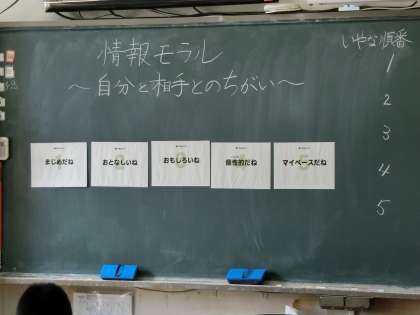 情報モラル
～自分と相手とのちがい～
まじめだね
おとなしいね
おもしろいね
個性的だね
マイペースだね
いやな順番
1
2
3
4
5